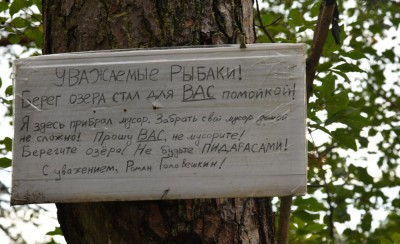 УВАЖАЕМЫЕ РЫБАКИ!
Берег озера стал для ВАС помойкой!
Я здесь прибрал мусор. Забрать свой мусор домой
не сложно! Прошу ВАС, не мусорите!
Берегите озёра! Не будьте ПИДАРАСАМИ!
С уважением, Роман Головёшкин!